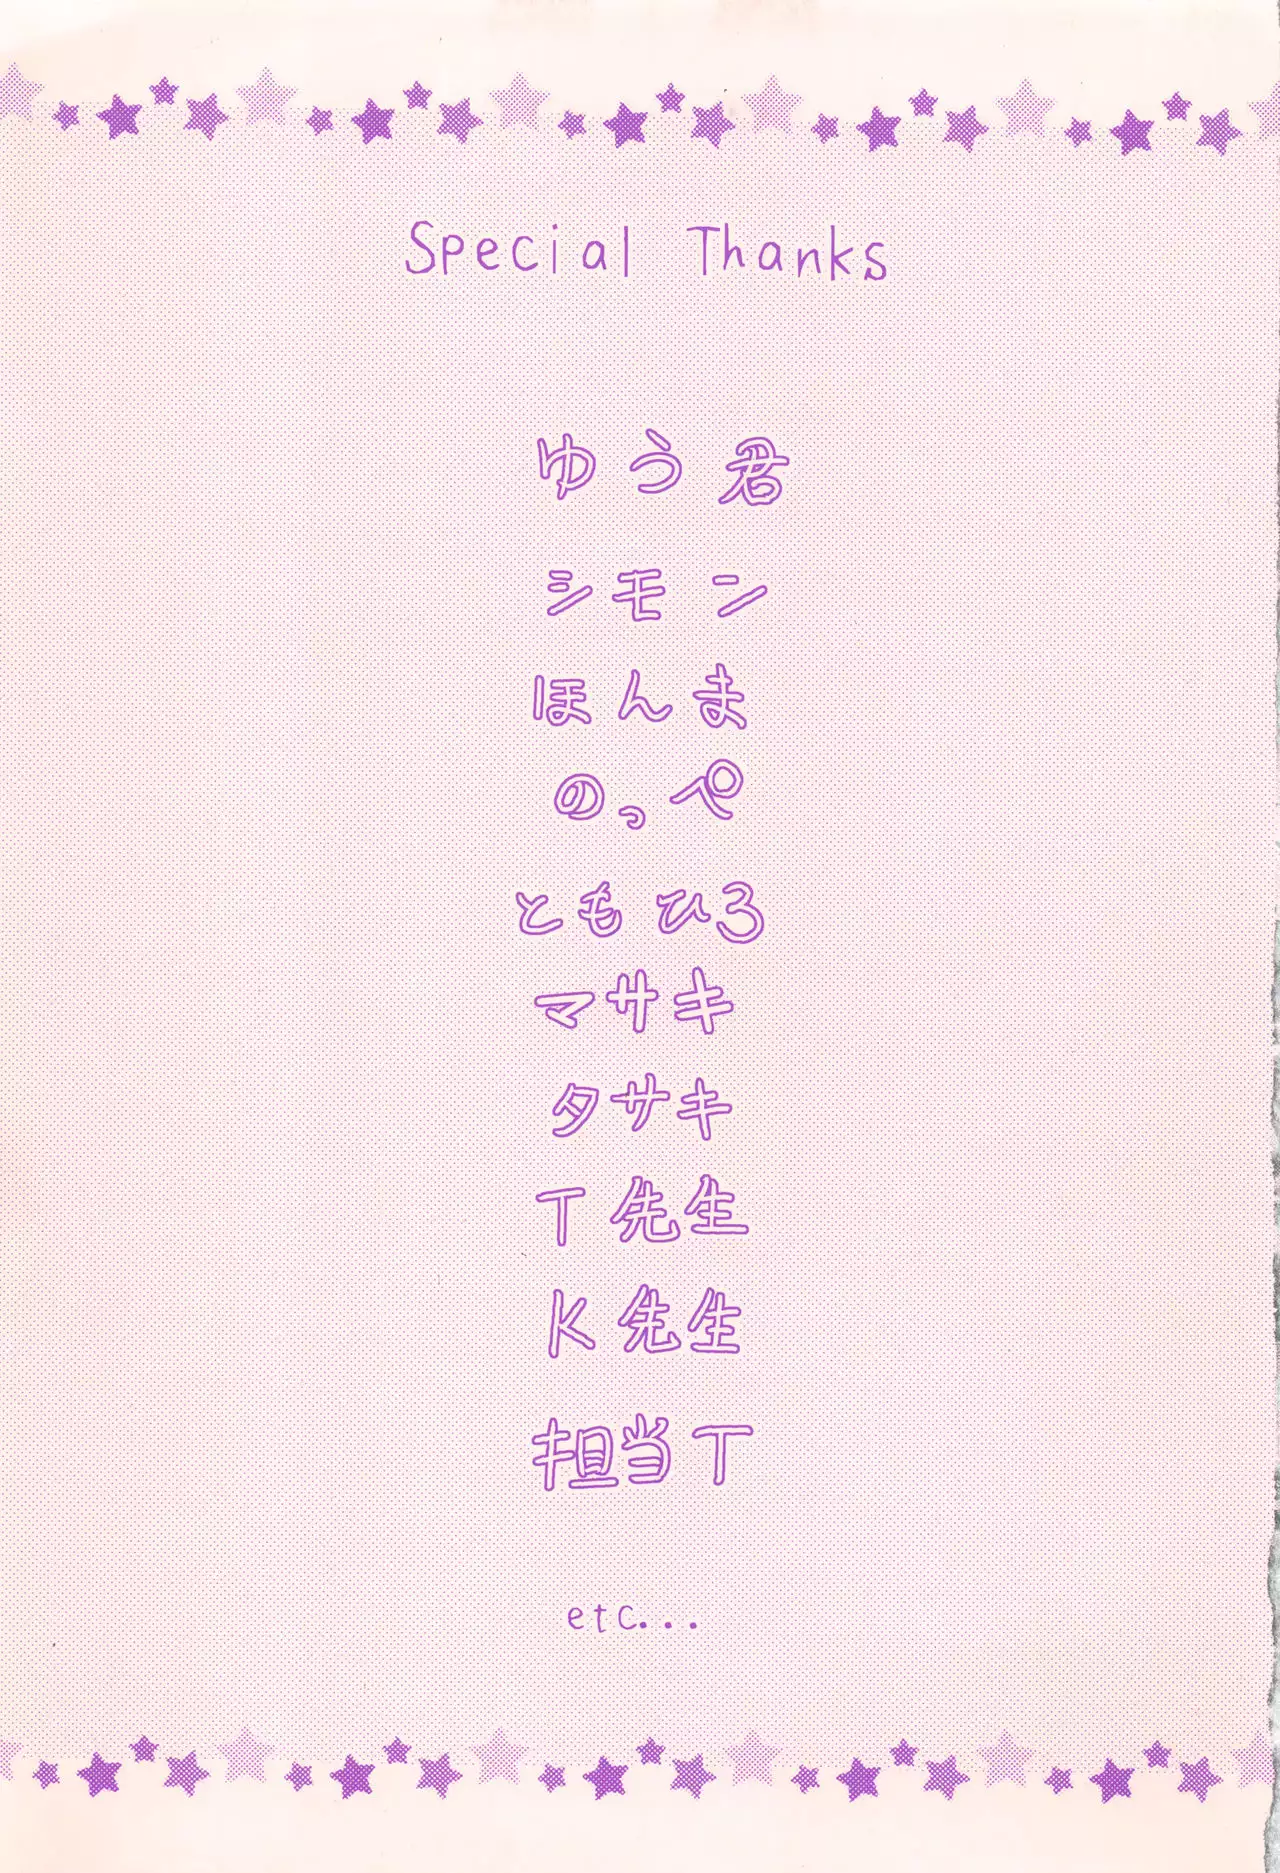 Special Thanks
ゆう君
シモン
ほんま
のっぺ
ともひろ
マサキ
タサキ
T先生
K先生
担当T
etc...